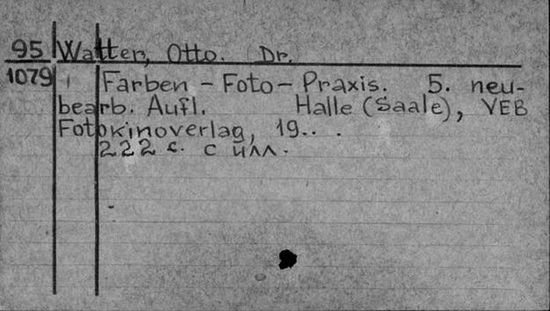 95 Walter, Otto. Dr.
1079 Farben - Foto - Praxis. 5. neu-
bearb. Aufl. Halle (Saale), VEB
Fotokinoverlag, 19.. .
222 с. с илл.